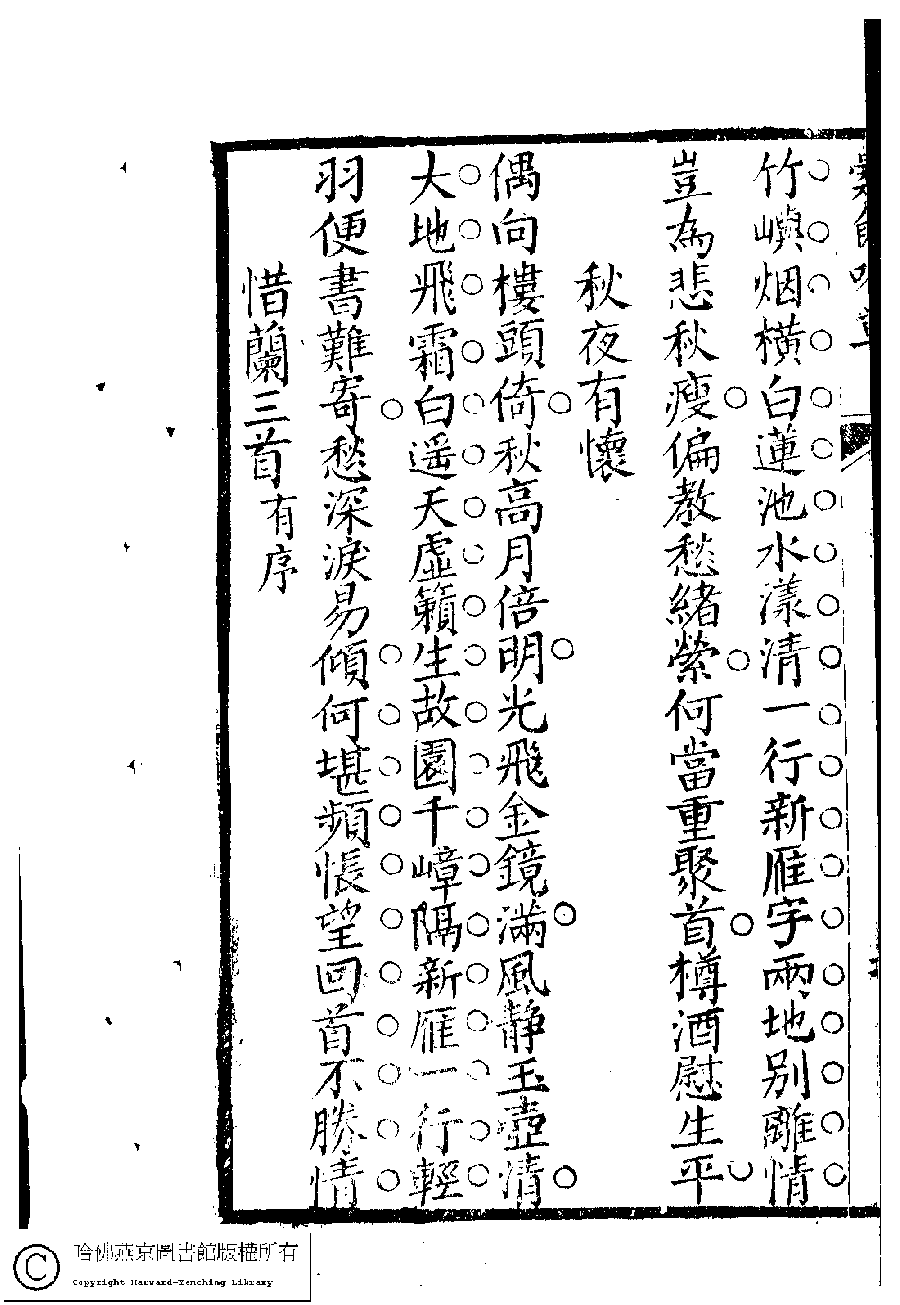 竹嶼烟橫白蓮池水漾清一行新雁字兩地别離情
豈為悲秋瘦偏教愁緒縈何當重聚首樽酒慰生平
秋夜有懷
偶向樓頭倚秋高月倍明光飛金鏡滿風靜玉壺清
大地飛霜白遥天虛籟生故園千嶂隔新雁一行輕
羽便書難寄愁深淚易傾何堪頻悵望回首不勝情
惜蘭三首有序
哈佛燕京圖書館版權所有
Copyright Harvard-Yenching Library